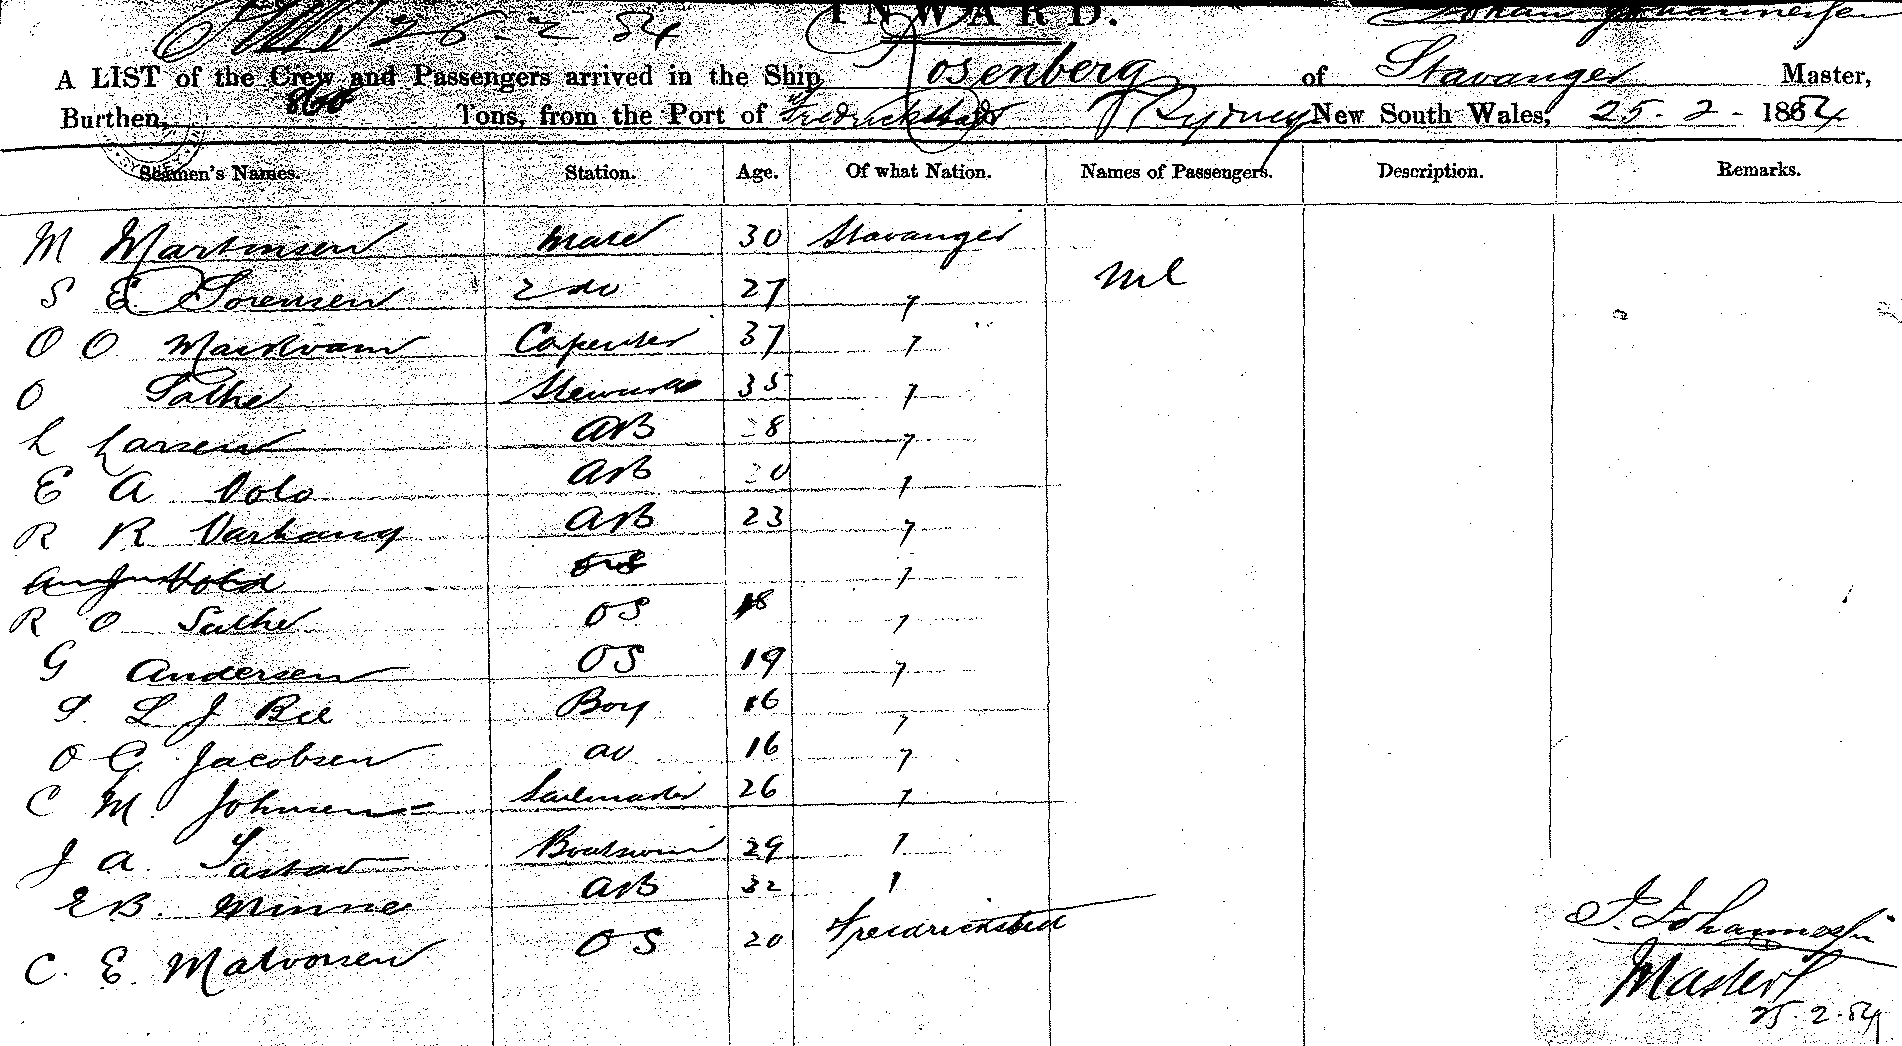 INWARD.
26-2 84 Johan Johannessen
A LIST of the Crew and Passengers arrived in the Ship Rosenberg of Stavanger Master,
Burthen, 860 Tons, from the Port of Fredrickstad to Sydney New South Wales, 25.2-1884
Seamen's Names. Station. Age. Of what Nation. Names of Passengers. Description. Remarks.
M Martinsen Mate 30 Stavanger
S E Sorensen 2 do 27 " Nil
O O Carpenter 37 "
O Sathe Steward 35 "
L Larsen AB 28 "
E A AB 20 "
R R Varhaug AB 23 "
OS "
R O Sathe OS 18 "
G Andersen OS 19 "
S. L J Bie Boy 16 "
O G Jacobsen do 16 "
C M Johnsen Sailmaker 26 "
J A. Boatswain 29 "
E B. Minne AB 32 "
C. E. OS 20 Fredrickstad
J. Johannessen
Master
25.2.84